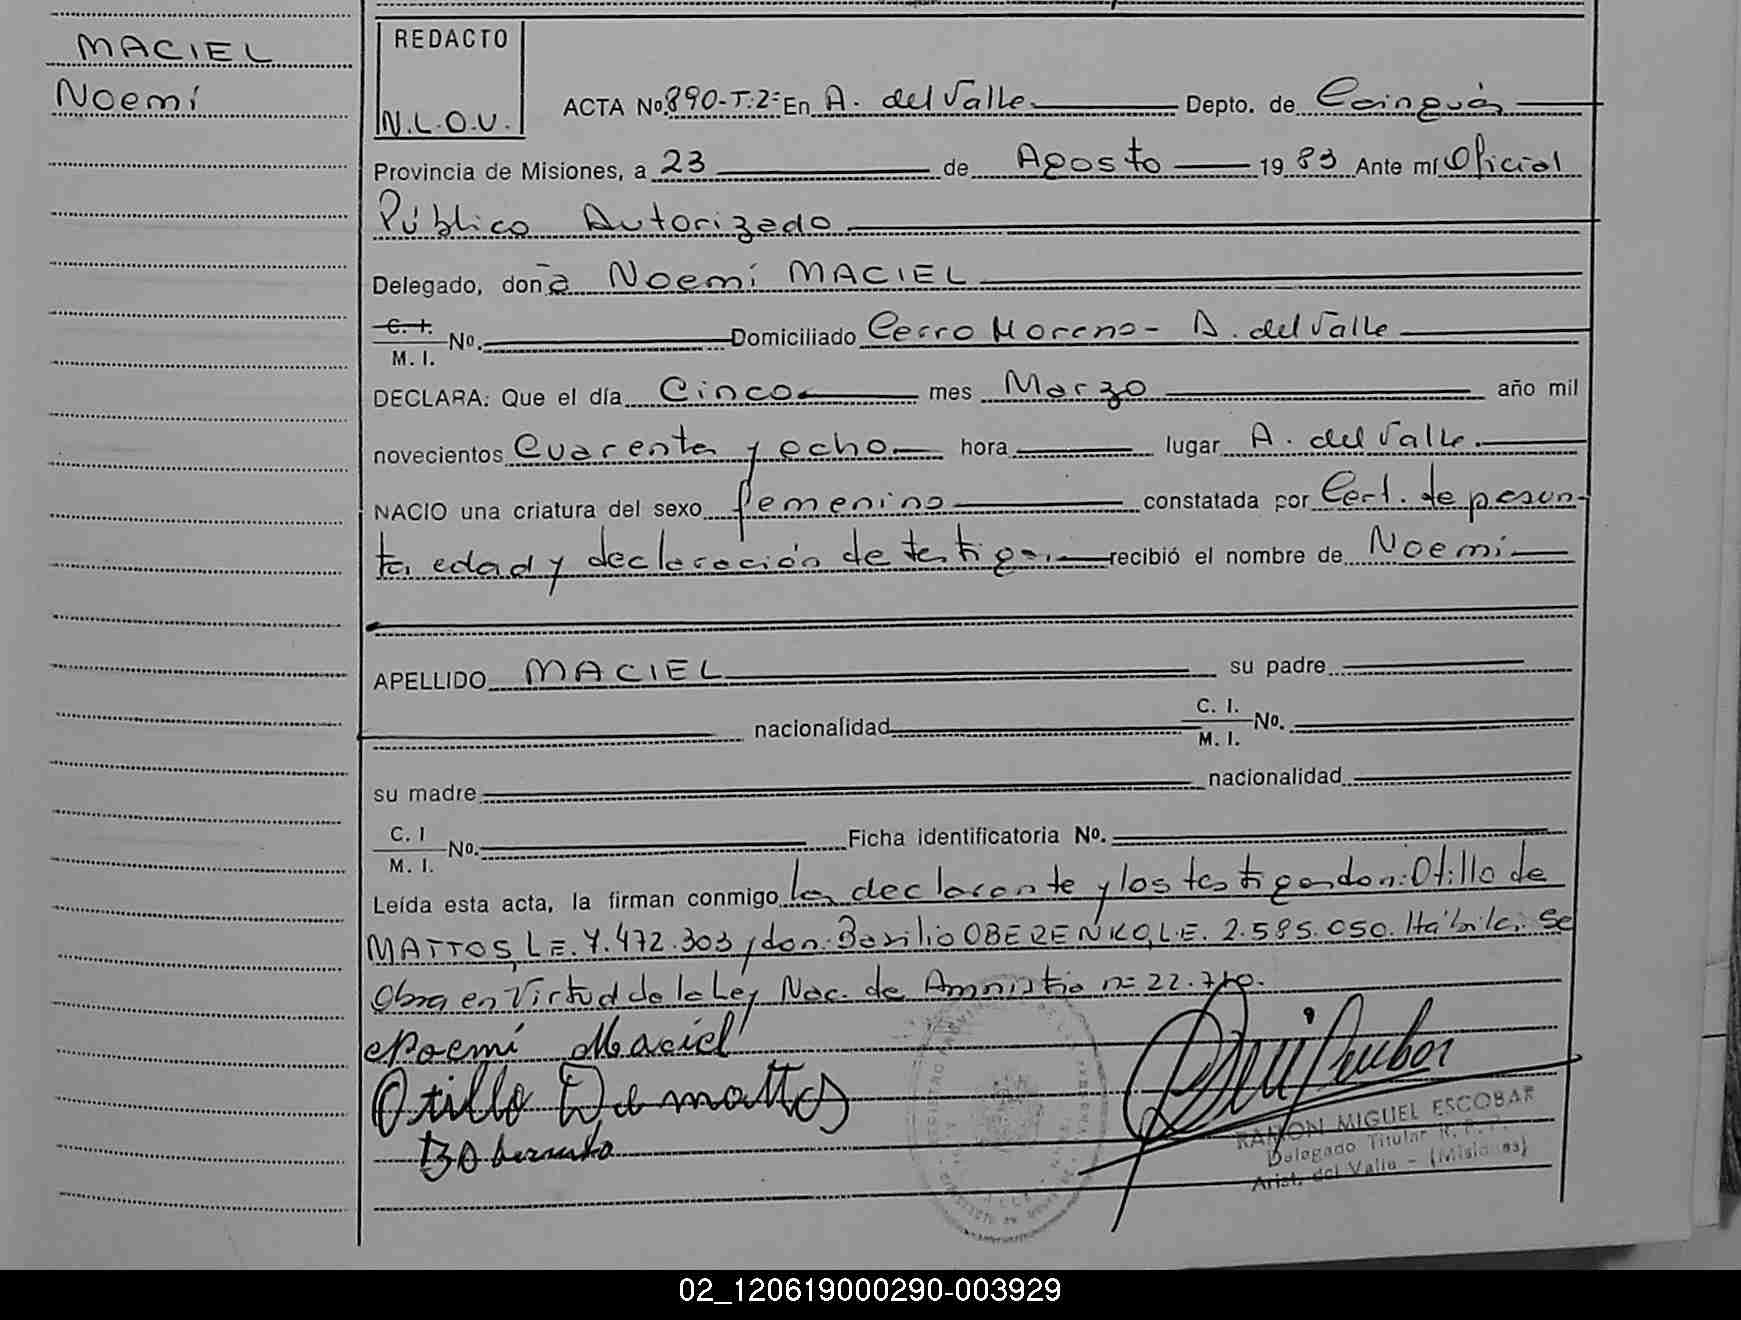 MACIEL
Noemí
REDACTO
N.L.O.V.
ACTA No. 890-T:2º En A. del Valle Depto. de Cainguás
Provincia de Misiones, a 23 de Agosto 1983 Ante mí Oficial
Público Autorizado
Delegado, doña Noemí MACIEL
C. I.
M. I. No. Domiciliado Cerro Moreno - A. del Valle
DECLARA: Que el día Cinco mes Marzo año mil
novecientos Cuarenta y ocho hora lugar A. del Valle
NACIO una criatura del sexo femenino constatada por Cert. de presun-
ta edad y declaración de testigos recibió el nombre de Noemí
APELLIDO MACIEL su padre
nacionalidad C. I.
M. I. No.
su madre nacionalidad
C. I
M. I. No. Ficha identificatoria No.
Leída esta acta, la firman conmigo la declarante y los testigos don: Otillo de
MATTOS, L.E. 7.472.303 y don: Basilio OBERENKO, L.E. 2.585.050. Hábiles. Se
Obra en Virtud de la Ley Nac. de Amnistía nº 22.710.
Noemí Maciel
Otillo De mattos
RAMON MIGUEL ESCOBAR
Delegado Titular R. P.
Arist. del Valle - (Misiones)
02_120619000290-003929